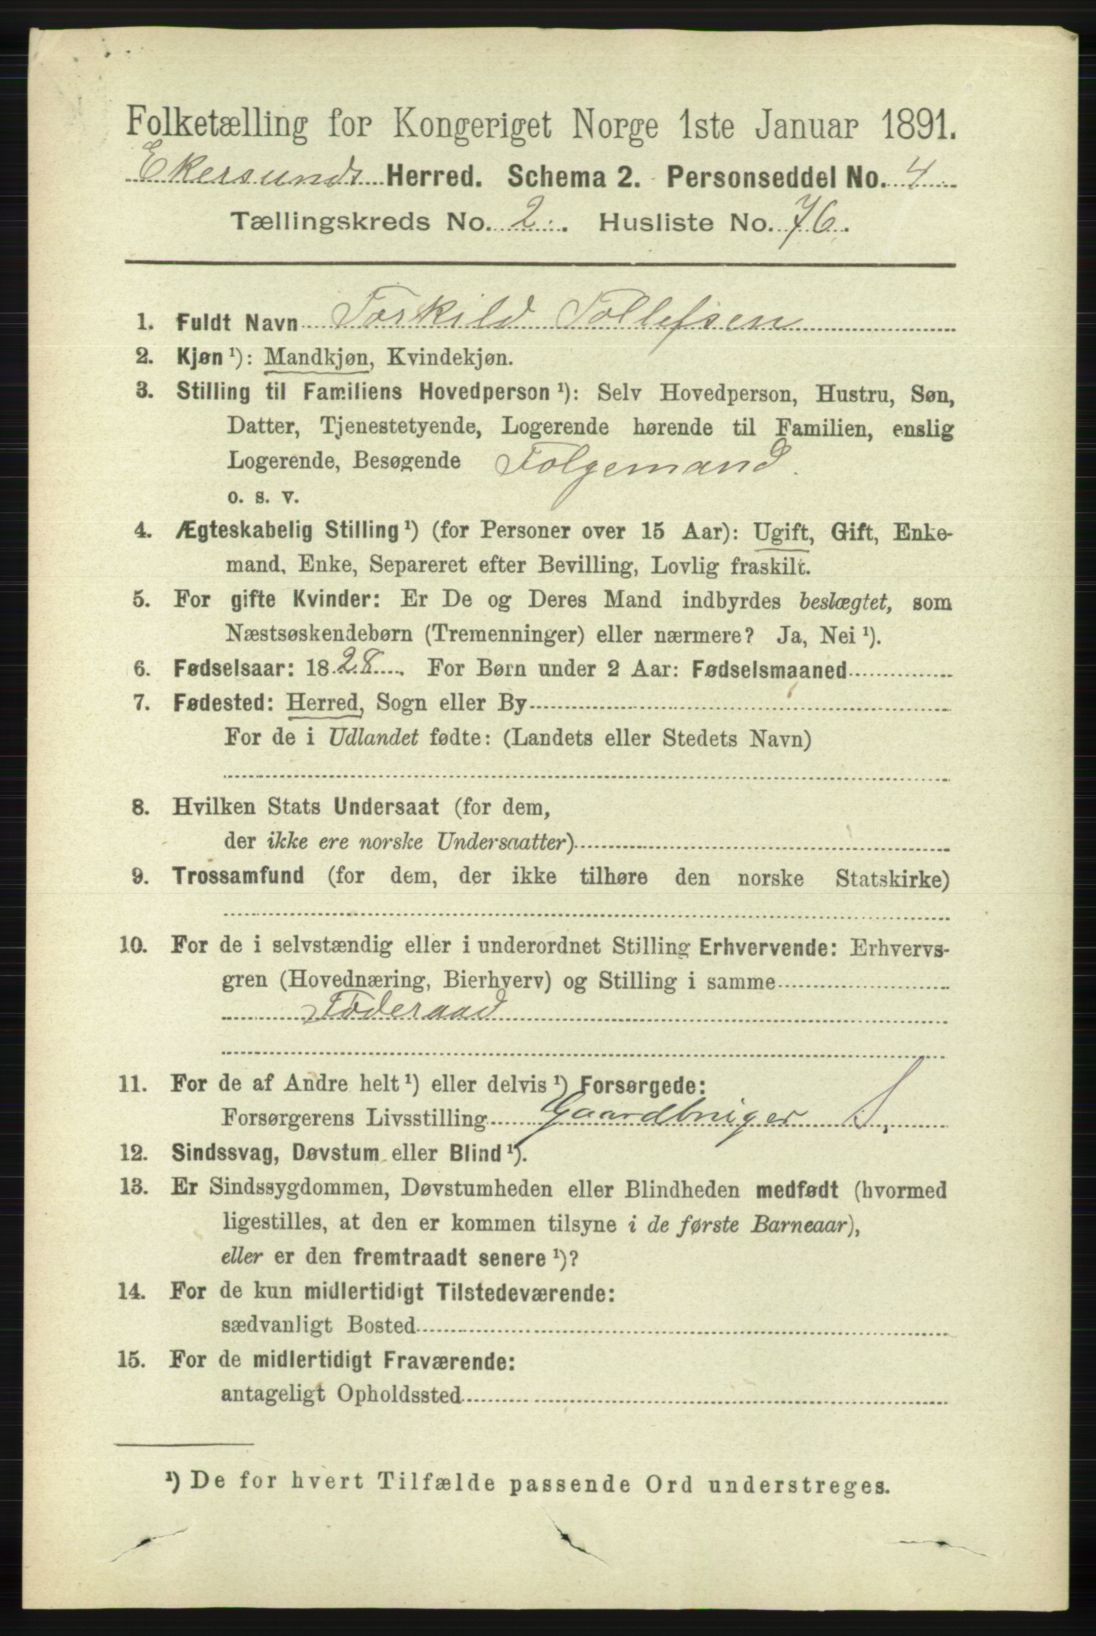 Folketælling for Kongeriget Norge 1ste Januar 1891.
Ekersunds Herred. Schema 2. Personseddel No. 4
Tællingskreds No. 2. Husliste No. 76.
1. Fuldt Navn Torkild Tollefsen
2. Kjøn ¹): Mandkjøn, Kvindekjøn.
3. Stilling til Familiens Hovedperson ¹): Selv Hovedperson, Hustru, Søn,
Datter, Tjenestetyende, Logerende hørende til Familien, enslig
Logerende, Besøgende Folgemand.
o. s. v.
4. Ægteskabelig Stilling ¹) (for Personer over 15 Aar): Ugift, Gift, Enke-
mand, Enke, Separeret efter Bevilling, Lovlig fraskilt.
5. For gifte Kvinder: Er De og Deres Mand indbyrdes beslægtet, som
Næstsøskendebørn (Tremenninger) eller nærmere? Ja, Nei ¹).
6. Fødselsaar: 1828. For Børn under 2 Aar: Fødselsmaaned
7. Fødested: Herred, Sogn eller By
For de i Udlandet fødte: (Landets eller Stedets Navn)
8. Hvilken Stats Undersaat (for dem,
der ikke ere norske Undersaatter)
9. Trossamfund (for dem, der ikke tilhøre den norske Statskirke)
10. For de i selvstændig eller i underordnet Stilling Erhvervende: Erhvervs-
gren (Hovednæring, Bierhverv) og Stilling i samme
Føderaad
11. For de af Andre helt ¹) eller delvis ¹) Forsørgede:
Forsørgerens Livsstilling Gaardbruger S.
12. Sindssvag, Døvstum eller Blind ¹).
13. Er Sindssygdommen, Døvstumheden eller Blindheden medfødt (hvormed
ligestilles, at den er kommen tilsyne i de første Barneaar),
eller er den fremtraadt senere ¹)?
14. For de kun midlertidigt Tilstedeværende:
sædvanligt Bosted
15. For de midlertidigt Fraværende:
antageligt Opholdssted
¹) De for hvert Tilfælde passende Ord understreges.